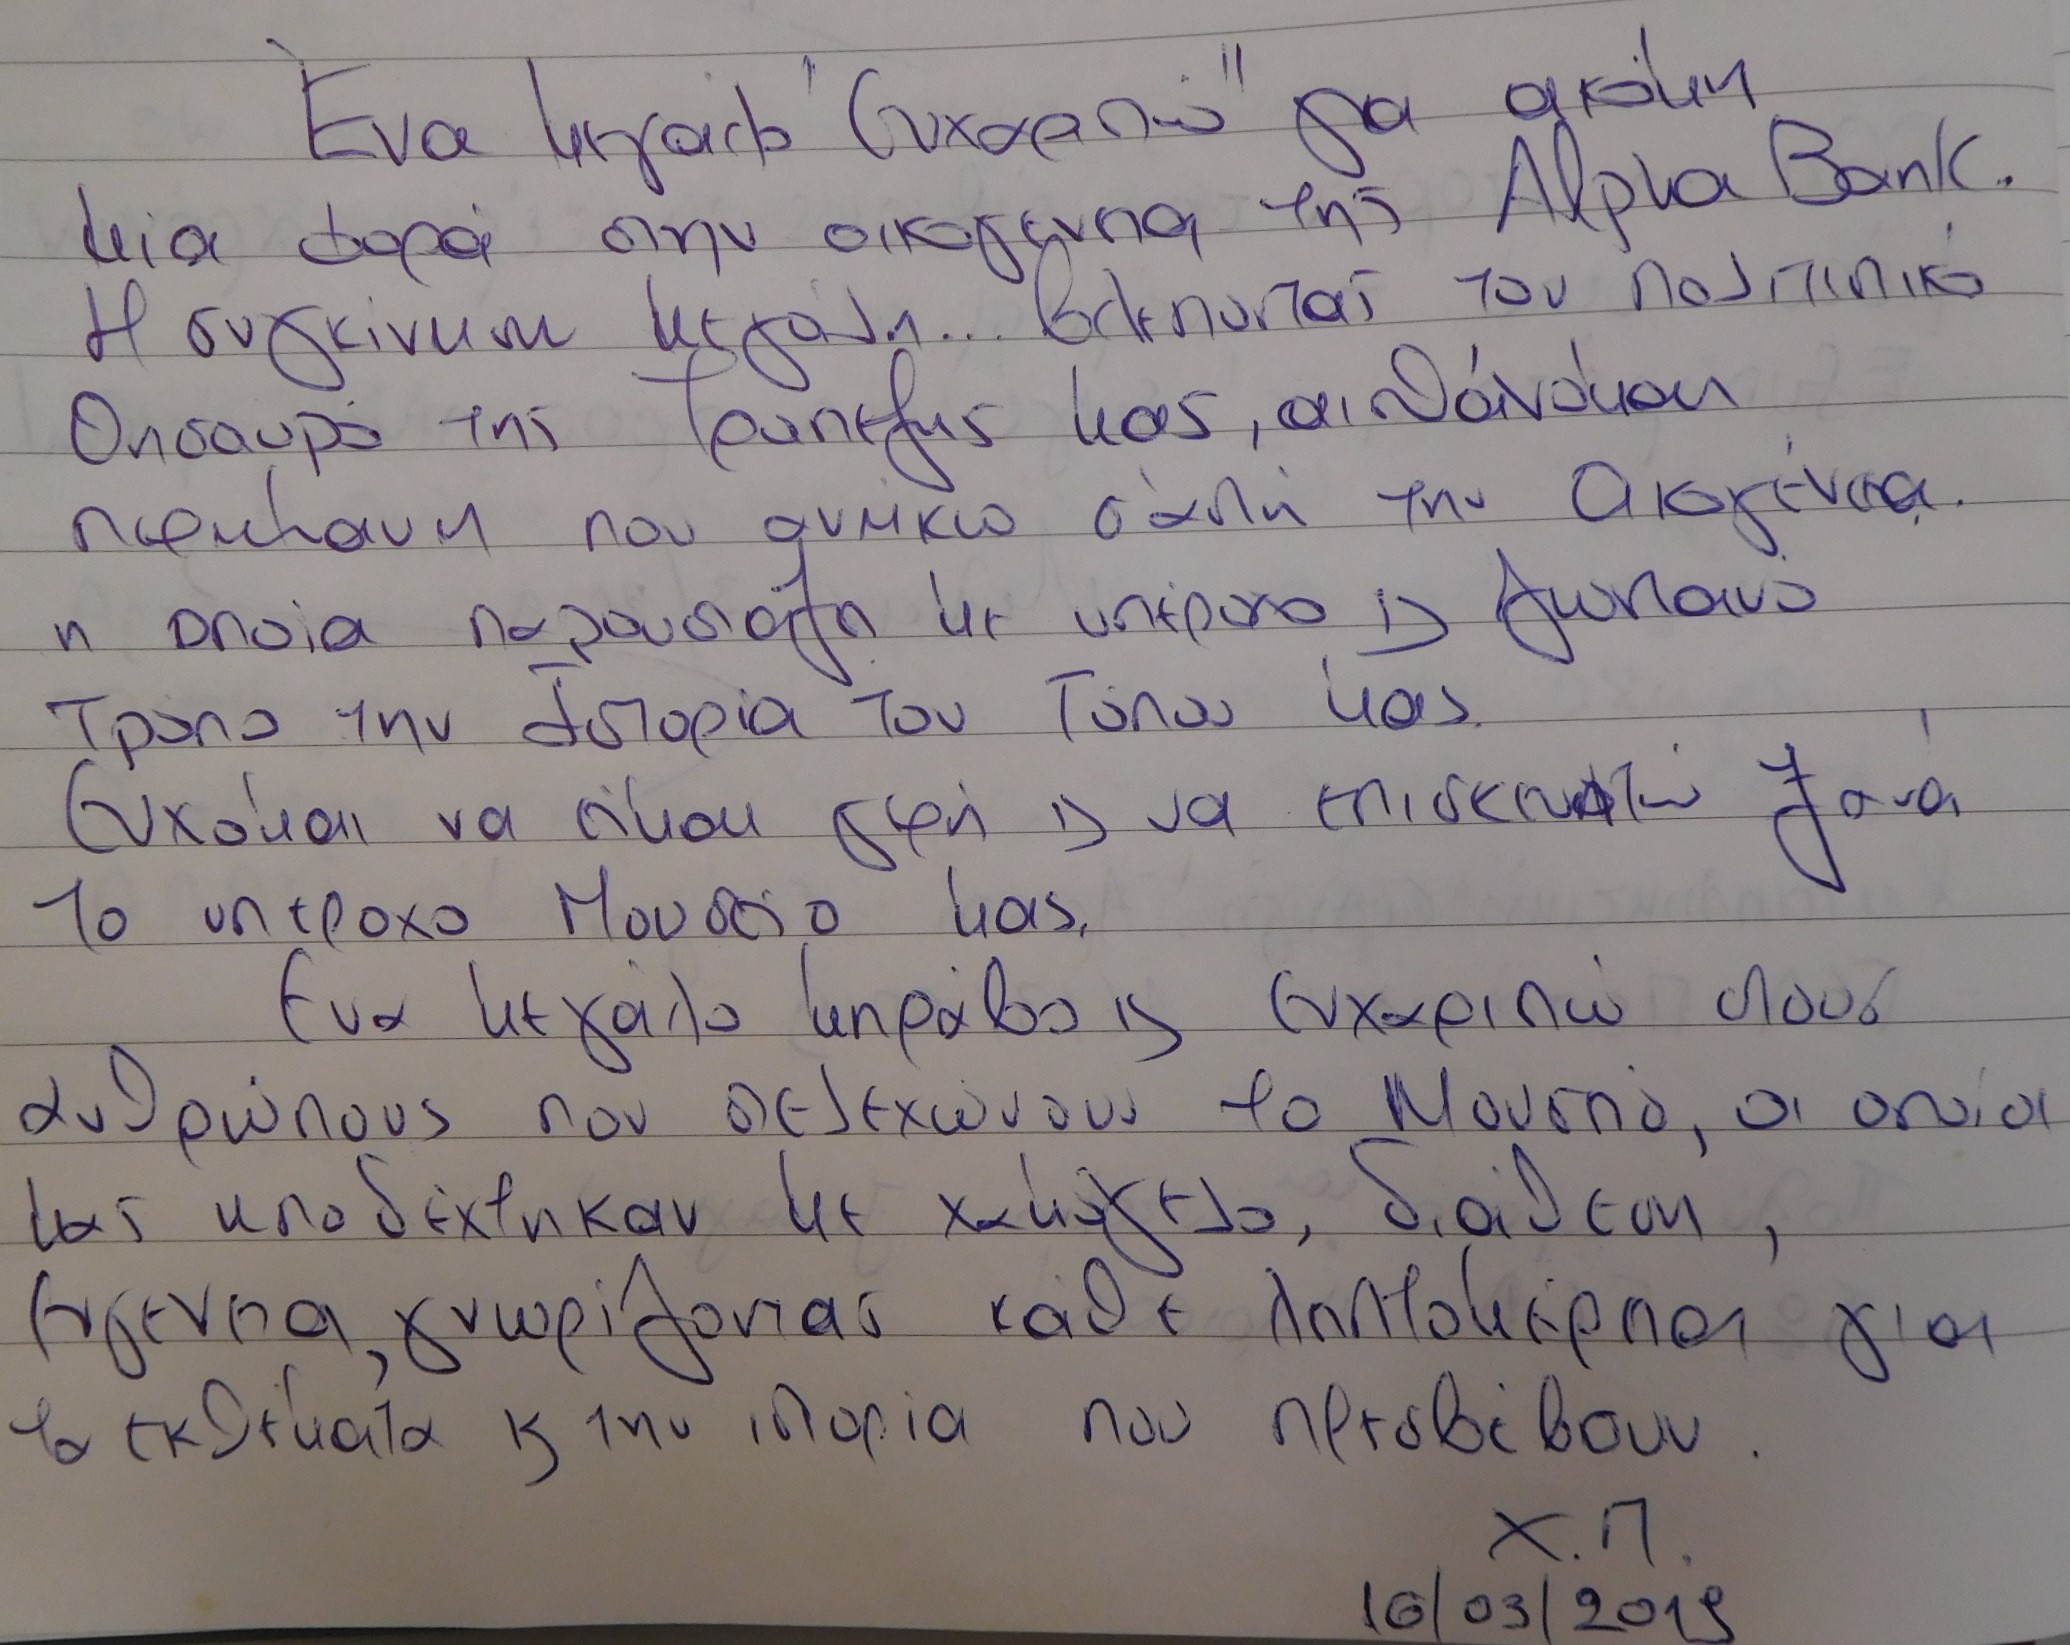 Ένα μεγάλο "Ευχαριστώ" για ακόμη
μία φορά στην οικογένεια της Alpha Bank.
Η συγκίνηση μεγάλη... βλέποντας τον πολιτιστικό
Θησαυρό της Τραπέζης μας, αισθάνομαι
περήφανη που ανήκω σ' αυτή την Οικογένεια
η οποία παρουσιάζει με υπέροχο κ ζωντανό
τρόπο την Ιστορία του Τόπου μας.
Εύχομαι να είμαι γερή κ να επισκευτώ ξανά
το υπέροχο Μουσείο μας.
Ένα μεγάλο μπράβο κ ευχαριστώ στους
ανθρώπους που στελεχώνουν το Μουσείο, οι οποίοι
μας υποδέχτηκαν με χαμόγελο, διάθεση,
ευγένεια, γνωρίζοντας κάθε λεπτομέρεια για
τα εκθέματα κ την ιστορία που πρεσβέβουν.
Χ.Π.
16/03/2019